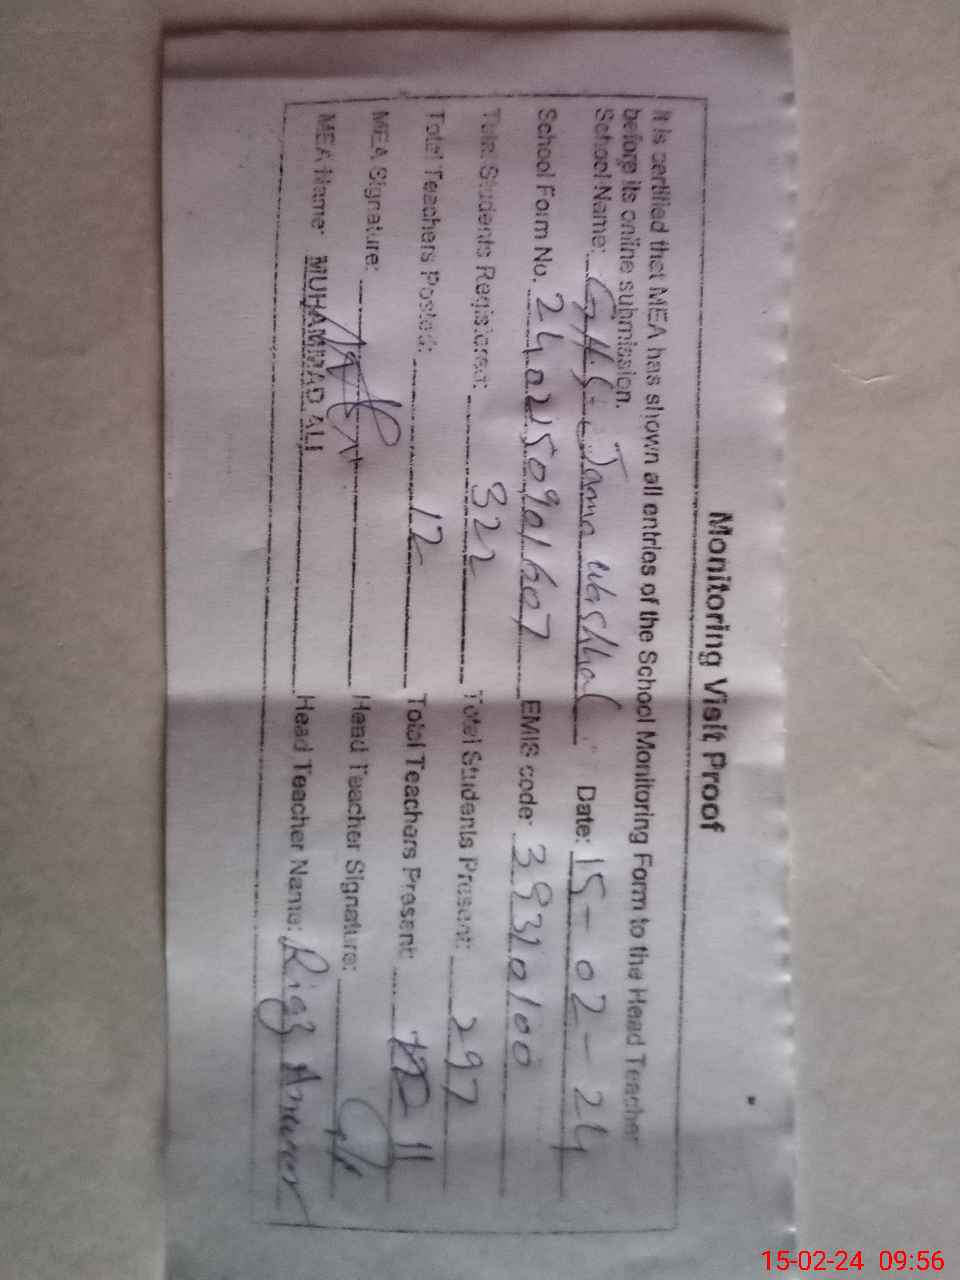 Monitoring Visit Proof
It is certified that MEA has shown all entries of the School Monitoring Form to the Head Teacher
before its online submission.
School Name: GHS Jama Washhal Date: 15-02-24
School Form No. 2402150901607 EMIS code: 39310100
Total Students Registered: 322 Total Students Present: 297
Total Teachers Posted: 12 Total Teachers Present: 11
MEA Signature: Head Teacher Signature:
MEA Name: MUHAMMAD ALI Head Teacher Name: Riaz Anwar
15-02-24 09:56